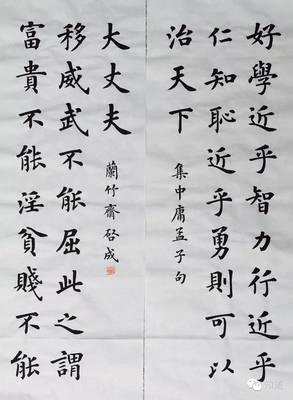 好學近乎智力行近乎
仁知恥近乎勇則可以
治天下
集中庸孟子句
富貴不能淫貧賤不能
移威武不能屈此之謂
大丈夫
蘭竹齋啓成